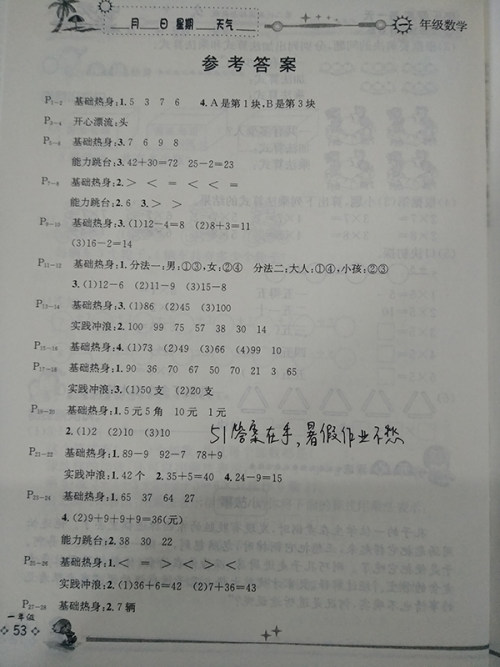 月 日 星期 天气
年级数学
参考答案
P1-2 基础热身:1. 5 3 7 6 4. A是第1块,B是第3块
P3-4 开心漂流:头
P5-6 基础热身:3. 7 6 9 8
能力跳台:3. 42+30=72 25-2=23
P7-8 基础热身:2. > < = < = =
能力跳台:2. 6 3. > >
P9-10 基础热身:3. (1)12-4=8 (2)8+3=11
(3)16-2=14
P11-12 基础热身:1. 分法一:男:①③,女:②④ 分法二:大人:①④,小孩:②③
3. (1)12-6 (2)11-9 (3)15-8
P13-14 基础热身:3. (1)86 (2)45 (3)100
实践冲浪:2. 100 99 75 57 38 30 14
P15-16 基础热身:4. (1)73 (2)49 (3)66 (4)99 10
P17-18 基础热身:1. 90 36 70 67 50 70 21 3 65
实践冲浪:3. (1)50支 (2)20支
P19-20 基础热身:1. 5元5角 10元 1元
2. (1)2 (2)10 (3)10
51答案在手,暑假作业不愁
P21-22 基础热身:1. 89-9 92-7 78+9
实践冲浪:1. 42个 2. 35+5=40 4. 24-9=15
P23-24 基础热身:1. 65 37 64 27
4. (2)9+9+9+9=36(元)
能力跳台:2. 38 30 22
P25-26 基础热身:1. < = > < > <
实践冲浪:1. (1)36+6=42 (2)7+36=43
P27-28 基础热身:2. 7辆
一年级
53